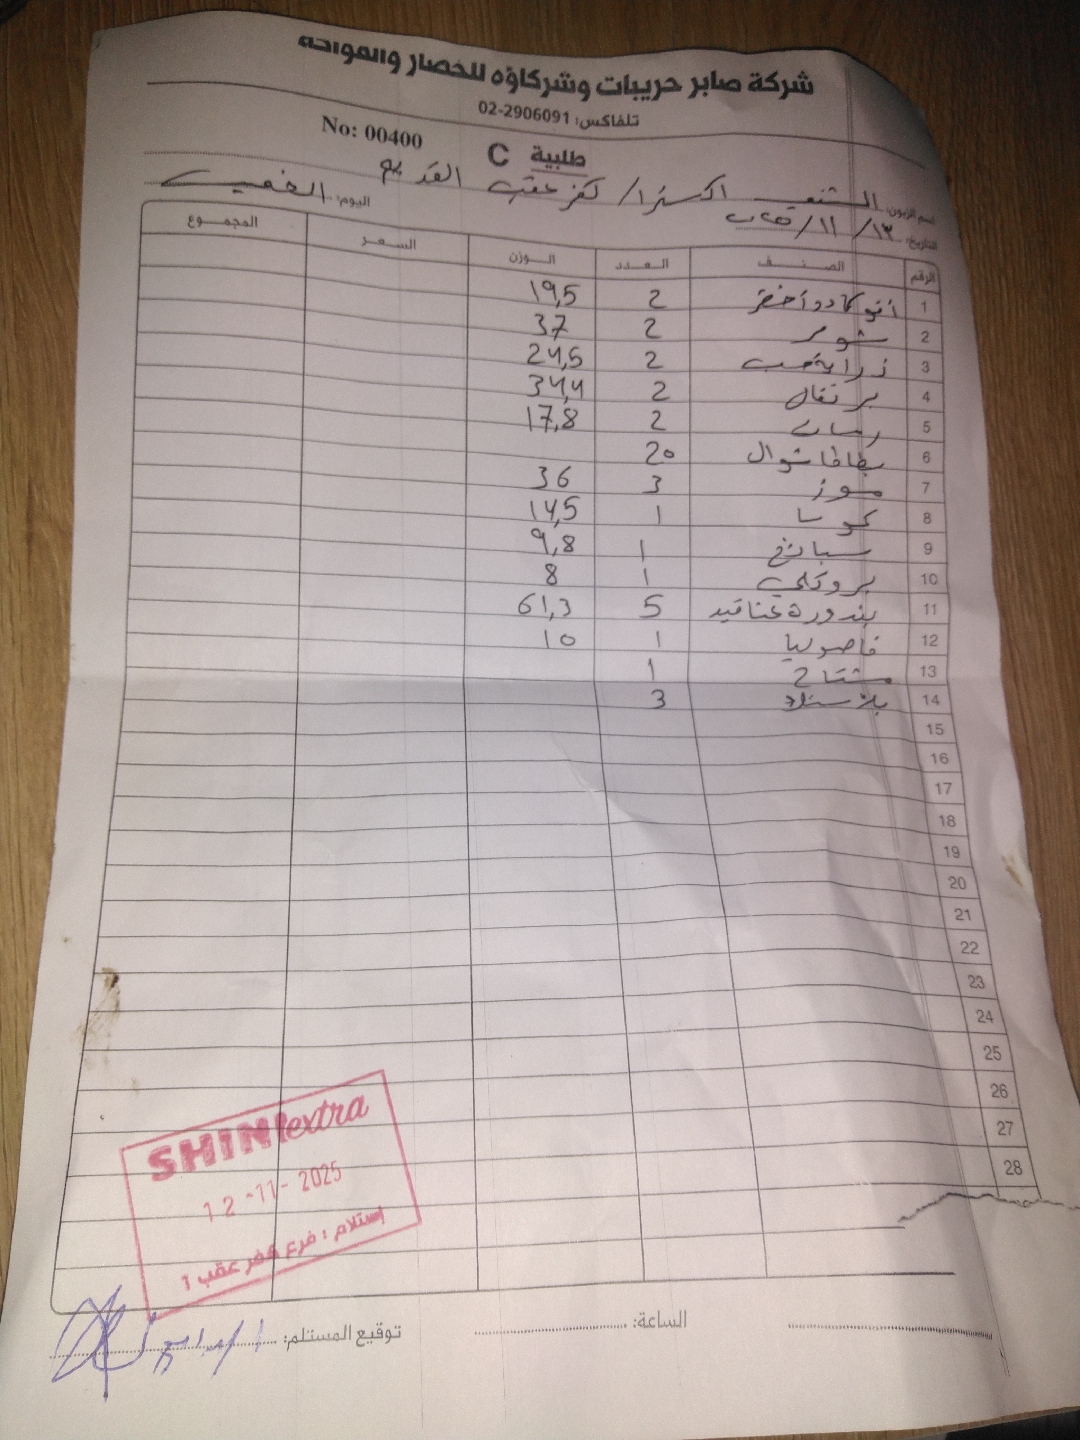 شركة صابر حريبات وشركاؤه للخضار والفواكه
تلفاكس: 02-2906091
No: 00400
طلبية C
اسم الزبون: الشني اكسترا / كفر عقب القديم
التاريخ: ١٣ / ١١ / اليوم: الخميس
الرقم الصنف العدد الوزن السعر المجموع
1 أفوكادو أخضر 2 19,5
2 شومر 2 37
3 2 24,5
4 برتقال 2 34,4
5 رمان 2 17,8
6 بطاطا شوال 20
7 موز 3 36
8 كوسا 1 14,5
9 سبانخ 1 9,8
10 بروكلي 1 8
11 بندورة عناقيد 5 61,3
12 فاصوليا 1 10
13 مشتاح 1
14 بلاستك 3
15
16
17
18
19
20
21
22
23
24
25
26
27
28
SHINI extra
12-11-2025
إستلام : فرع كفر عقب 1
الساعة:
توقيع المستلم: